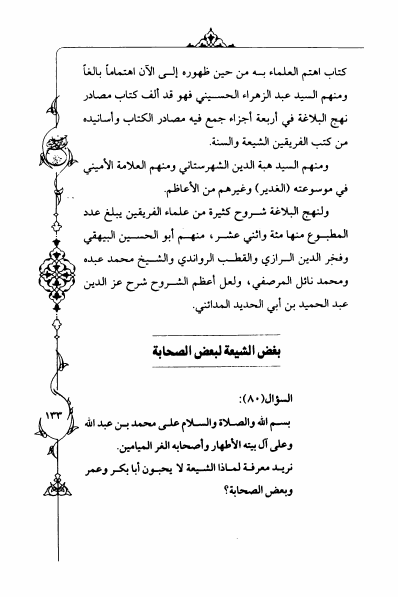 كتاب اهتم العلماء به من حين ظهوره إلى الآن اهتماماً بالغاً
ومنهم السيد عبد الزهراء الحسيني فهو قد ألف كتاب مصادر
نهج البلاغة في أربعة أجزاء جمع فيه مصادر الكتاب وأسانيده
من كتب الفريقين الشيعة والسنة.
ومنهم السيد هبة الدين الشهرستاني ومنهم العلامة الأميني
في موسوعته (الغدير) وغيرهم من الأعاظم.
ولنهج البلاغة شروح كثيرة من علماء الفريقين يبلغ عدد
المطبوع منها مئة واثني عشر، منهم أبو الحسين البيهقي
وفخر الدين الرازي والقطب الرواندي والشيخ محمد عبده
ومحمد نائل المرصفي، ولعل أعظم الشروح شرح عز الدين
عبد الحميد بن أبي الحديد المدائني.
بغض الشيعة لبعض الصحابة
السؤال(٨٠):
بسم الله والصلاة والسلام على محمد بن عبد الله
وعلى آل بيته الأطهار وأصحابه الغر الميامين.
نريد معرفة لماذا الشيعة لا يحبون أبا بكر وعمر
وبعض الصحابة؟
١٣٣